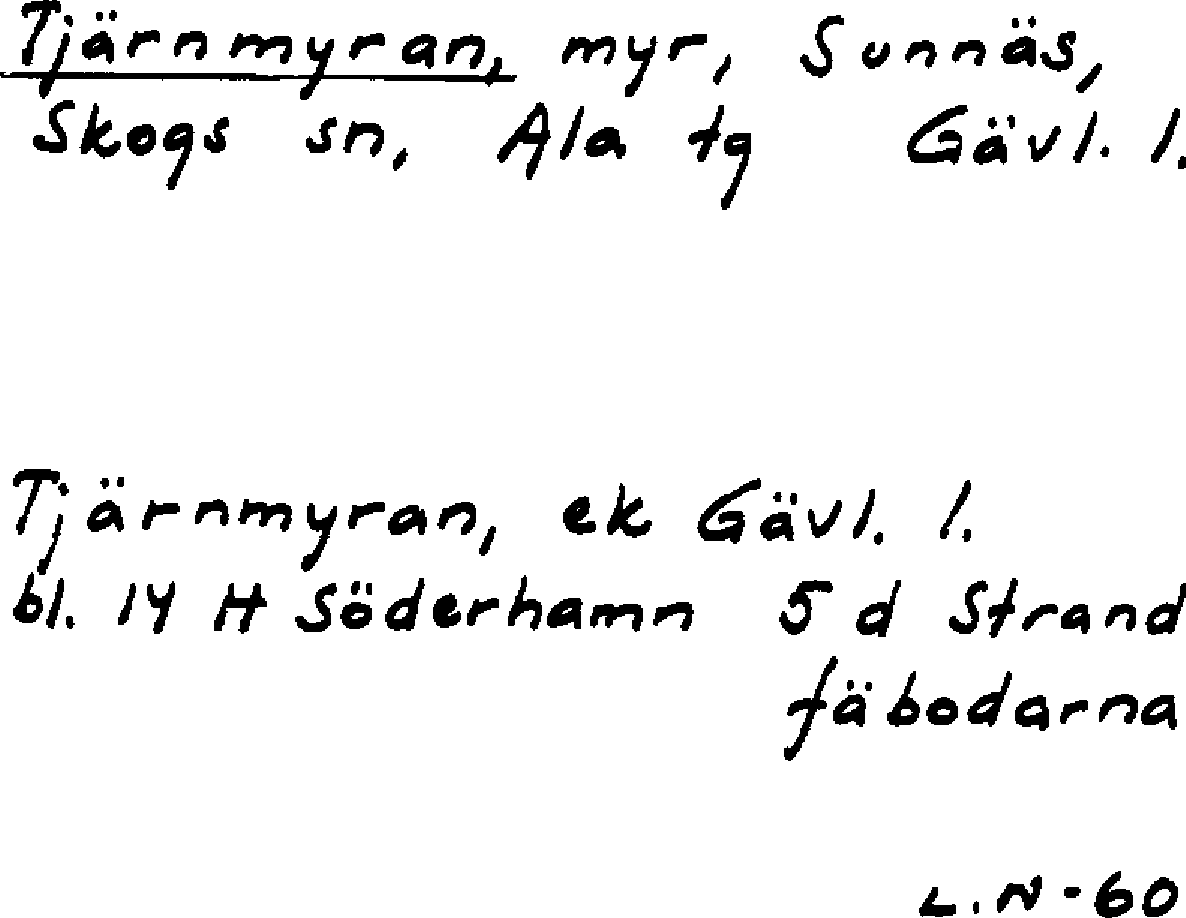 Tjärnmyran, myr, Sunnäs,
Skogs sn, Ala tg Gävl. l.
Tjärnmyran, ek Gävl. l.
bl. 14 H Söderhamn 5 d Strand
fäbodarna
L.N-60